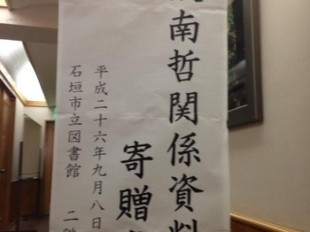 南哲関係資料
寄贈
平成二十六年九月八日
石垣市立図書館 二階